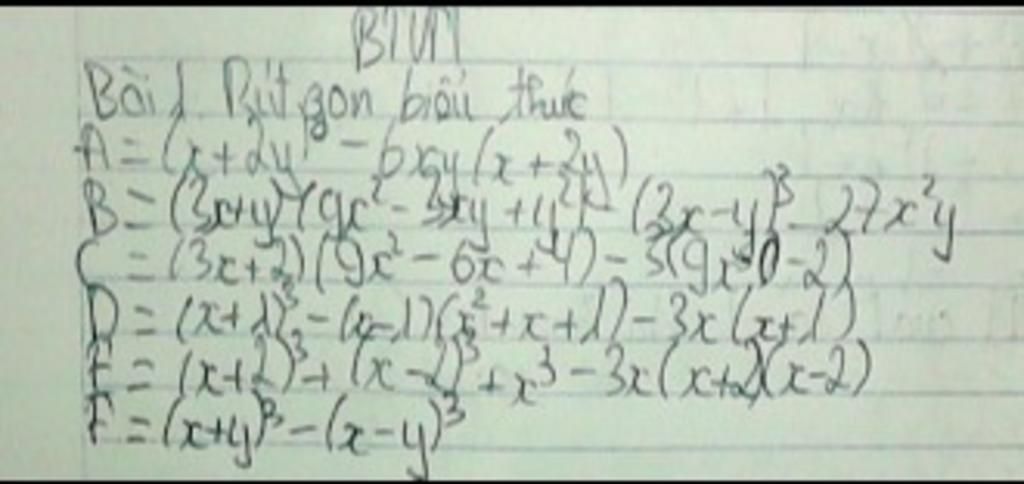 BTVN
Bài 1 Rút gọn biểu thức
A = (x+2y)³ - 6xy(x+2y)
B = (3x+y)(9x²-3xy+y²) - (3x-y)³ - 27x²y
C = (3x+2)(9x²-6x+4) - 3(9x³-2)
D = (x+1)³ - (x-1)(x²+x+1) - 3x(x+1)
E = (x+2)³ + (x-2)³ + x³ - 3x(x+2)(x-2)
F = (x+y)³ - (x-y)³